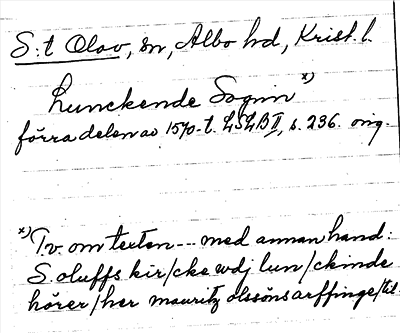 S:t Olov, sn, Albo hd, Krist. l.
Lunckende Sognn x)
förra delen av 1570-t. LSLB II, s. 236. orig.
x) T.v. om texten --- med annan hand:
S. oluffs kir/cke wdj lun/ckinde
hörer/her mauritz olssöns arffinge/til